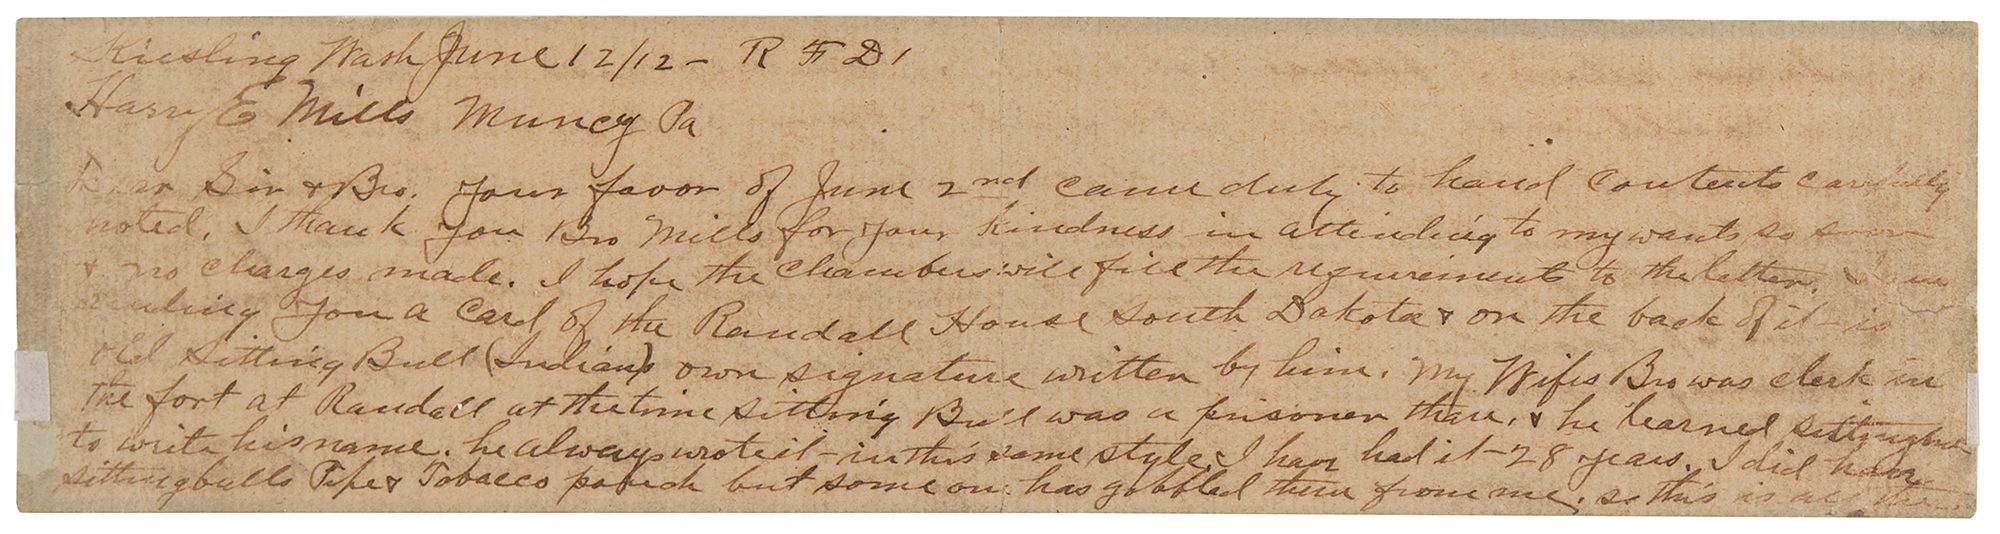 Kiesling Wash June 12/12 - R F D 1
Harry E Mills Muncy Pa
Dear Sir & Bro. Your favor of June 2nd came duly to hand Contents carefully
noted. I thank you Bro Mills for your kindness in attending to my wants so soon
& no charges made. I hope the Chambers will fill the requirements to the letter. I am
sending you a Card of the Randall House South Dakota & on the back of it - is
old Sitting Bull (Indian) own signature written by him. My Wifes Bro was clerk in
the fort at Randall at the time Sitting Bull was a prisoner thare. & he learned sittingbull
to write his name. he always wrote it - in this same style I have had it - 28 years. I did have
sittingbulls Pipe & Tobacco pouch but some on has gobbled them from me. so this is all